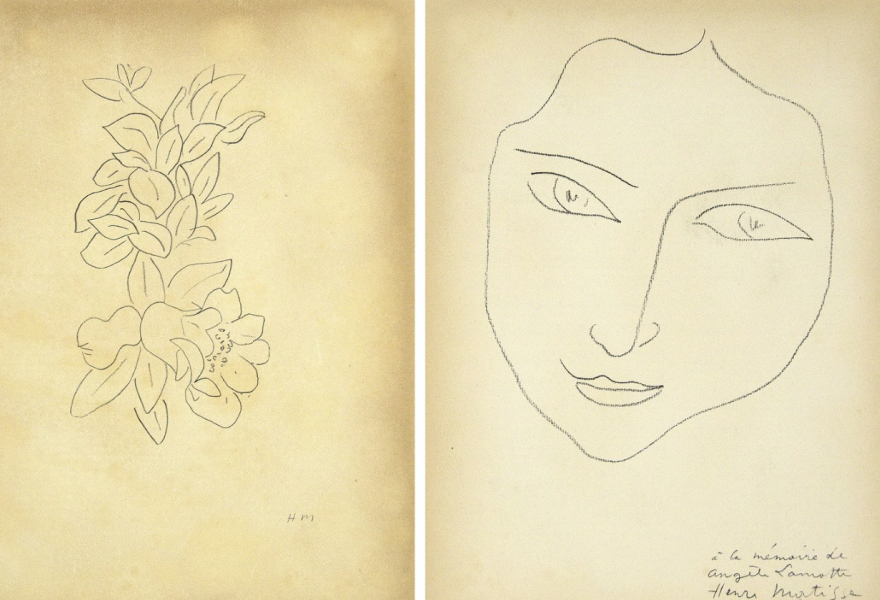 H M
à la mémoire de
angèle Lamotte
Henri Matisse